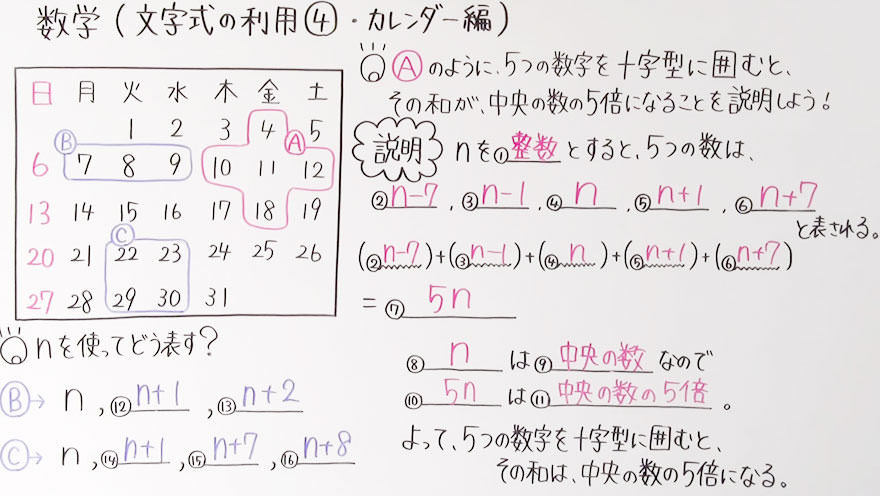 数学(文字式の利用④・カレンダー編)
日 月 火 水 木 金 土
1 2 3 4 5
Ⓑ Ⓐ
6 7 8 9 10 11 12
13 14 15 16 17 18 19
Ⓒ
20 21 22 23 24 25 26
27 28 29 30 31
nを使ってどう表す?
Ⓑ→ n , ⑫n+1 , ⑬n+2
Ⓒ→ n , ⑭n+1 , ⑮n+7 , ⑯n+8
Ⓐのように、5つの数字を十字型に囲むと、
その和が、中央の数の5倍になることを説明しよう!
説明 nを①整数とすると、5つの数は、
②n-7 , ③n-1 , ④n , ⑤n+1 , ⑥n+7
と表される。
(②n-7)+(③n-1)+(④n)+(⑤n+1)+(⑥n+7)
= ⑦5n
⑧n は⑨中央の数なので
⑩5n は⑪中央の数の5倍。
よって、5つの数字を十字型に囲むと、
その和は、中央の数の5倍になる。